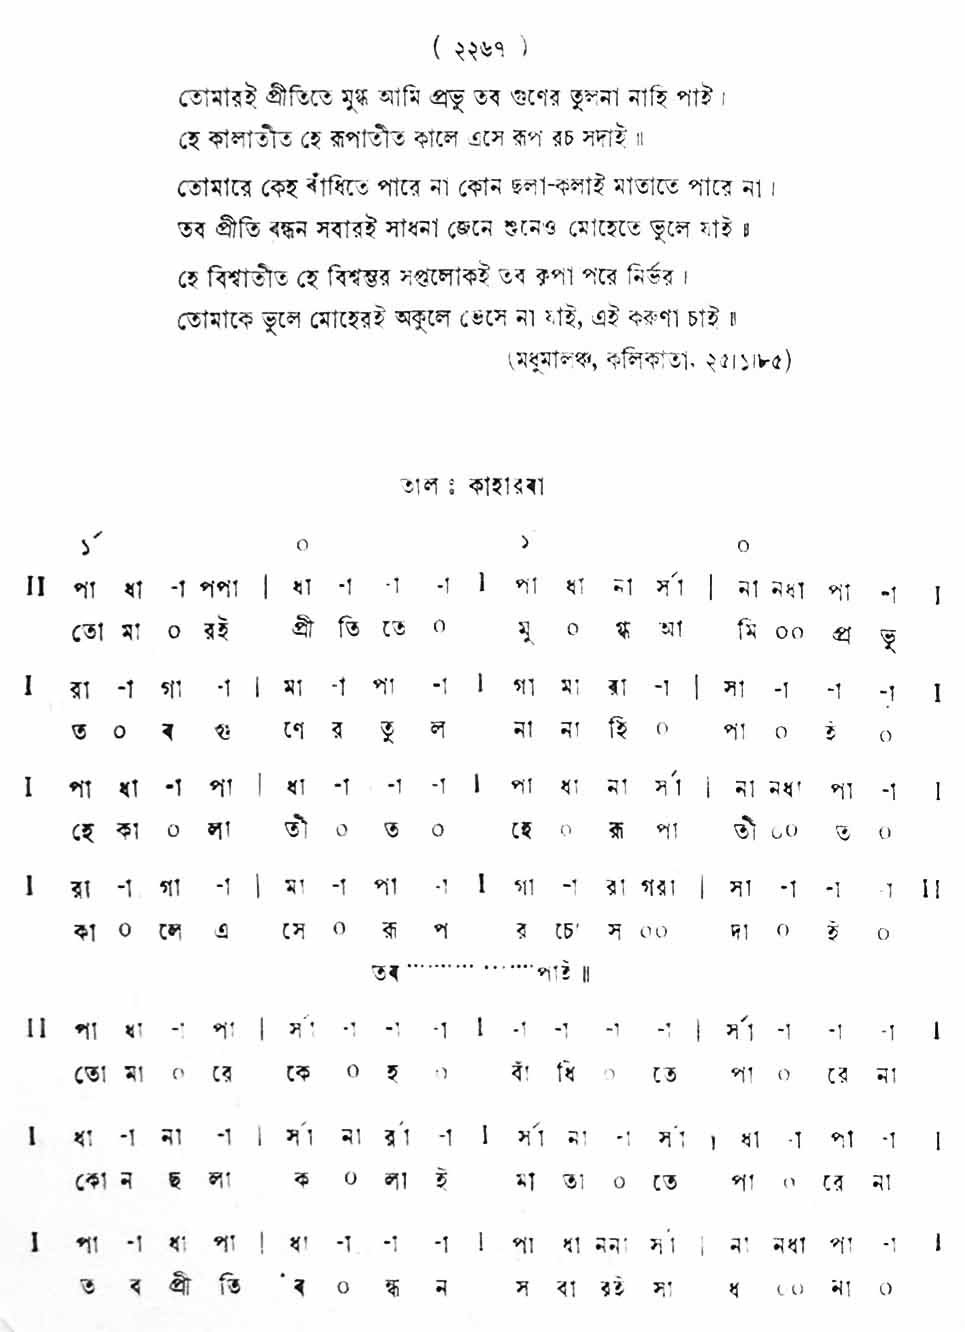 ( ২২৬৭ )
তোমারই প্রীতিতে মুগ্ধ আমি প্রভু তব গুণের তুলনা নাহি পাই।
হে কালাতীত হে রূপাতীত কালে এসে রূপ রচ সদাই॥
তোমারে কেহ বাঁধিতে পারে না কোন ছলা-কলাই মাতাতে পারে না।
তব প্রীতি বন্ধন সবারই সাধনা জেনে শুনেও মোহেতে ভুলে যাই॥
হে বিশ্বাতীত হে বিশ্বম্ভর সপ্তলোকই তব কৃপা পরে নির্ভর।
তোমাকে ভুলে মোহেরই অকুলে ভেসে না যাই, এই করুণা চাই॥
(মধুমালঞ্চ, কলিকাতা, ২৫।১।৮৫)
তাল ঃ কাহারবা
১´ ০ ১ ০
II পা ধা -া পপা | ধা -া -া -া I পা ধা না র্সা | না নধা পা -া I
তো মা ০ রই প্রী তি তে ০ মু ০ গ্ধ আ মি ০০ প্র ভু
I রা -া গা -া | মা -া পা -া I গা মা রা -া | সা -া -া -া I
ত ০ ব গু ণে র তু ল না না হি ০ পা ০ ই ০
I পা ধা -া পা | ধা -া -া -া I পা ধা না র্সা | না নধা পা -া I
হে কা ০ লা তী ০ ত ০ হে ০ রূ পা তী ০০ ত ০
I রা -া গা -া | মা -া পা -া I গা -া রা গরা | সা -া -া -া II
কা ০ লে এ সে ০ রূ প র চে' স ০০ দা ০ ই ০
তব ......... ......পাই॥
II পা ধা -া পা | র্সা -া -া -া I -া -া -া -া | র্সা -া -া -া I
তো মা ০ রে কে ০ হ ০ বাঁ ধি ০ তে পা ০ রে না
I ধা -া না -া | র্সা না র্রা -া I র্সা না -া র্সা | ধা -া পা -া I
কো ন ছ লা ক ০ লা ই মা তা ০ তে পা ০ রে না
I পা -া ধা পা | ধা -া -া -া I পা ধা ননা র্সা | না নধা পা -া I
ত ব প্রী তি ব ০ ন্ধ ন স বা রই সা ধ ০০ না ০